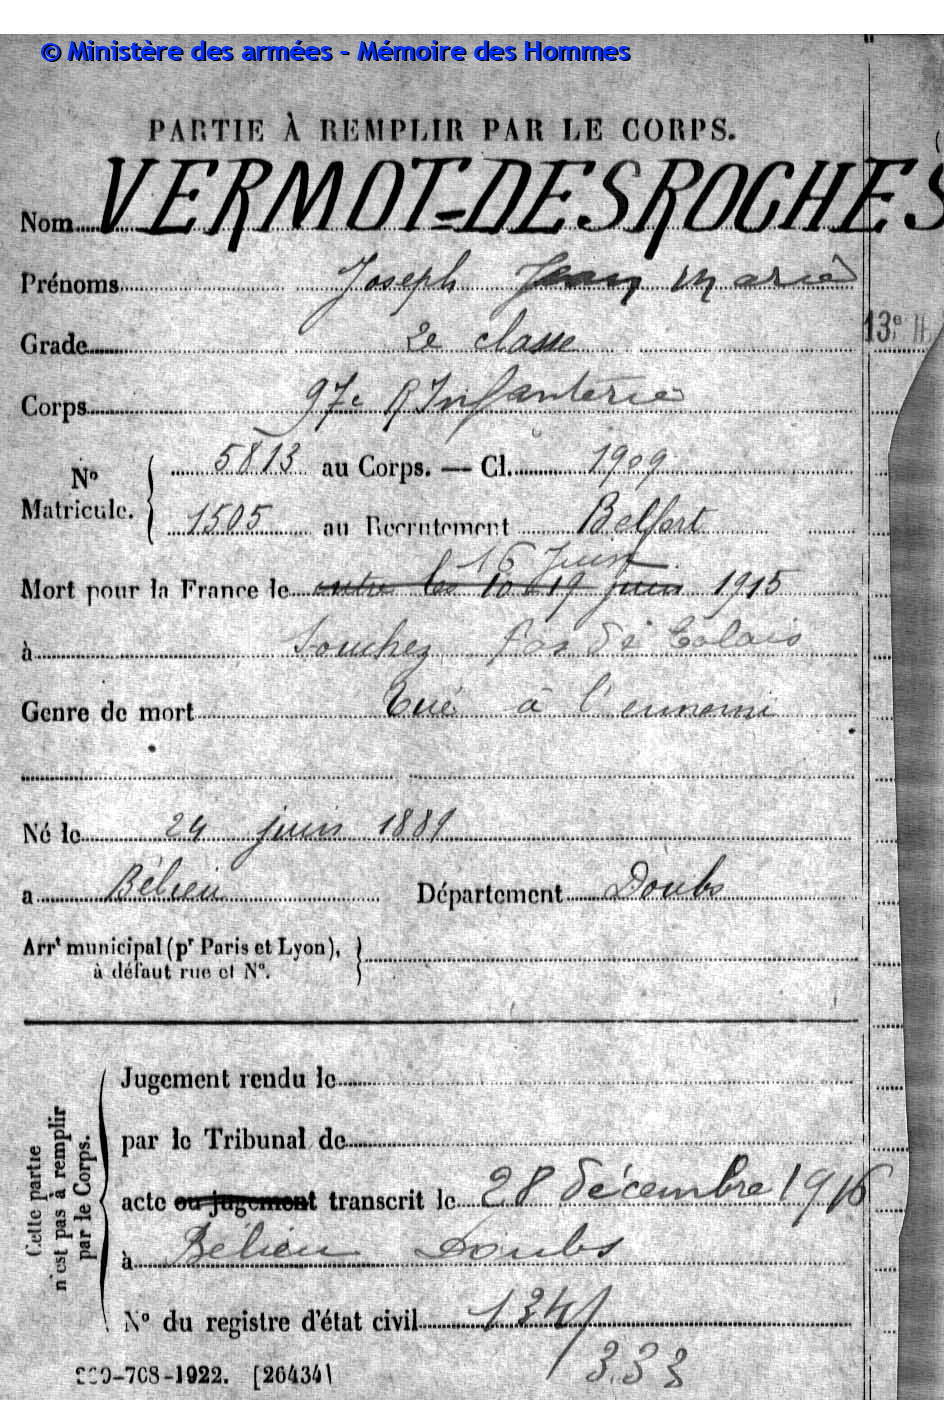 © Ministère des armées - Mémoire des Hommes
PARTIE À REMPLIR PAR LE CORPS.
Nom VERMOT-DESROCHES
Prénoms Joseph Jean Marie
Grade 2e classe
13e
Corps 97e R Infanterie
5813 au Corps. — Cl. 1909
No
Matricule.
1505 au Recrutement Belfort
16 Juin
Mort pour la France le entre les 10 19 juin 1915
à Souchez Pas de Calais
Genre de mort Tué à l'ennemi
Né le 24 juin 1889
a Bélieu Département Doubs
Arrt municipal (pr Paris et Lyon),
à défaut rue et No.
Cette partie
n'est pas à remplir
par le Corps.
Jugement rendu le
par le Tribunal de
acte ou jugement transcrit le 28 décembre 1916
à Bélieu Doubs
No du registre d'état civil 134/
333
-708-1922. [26434]